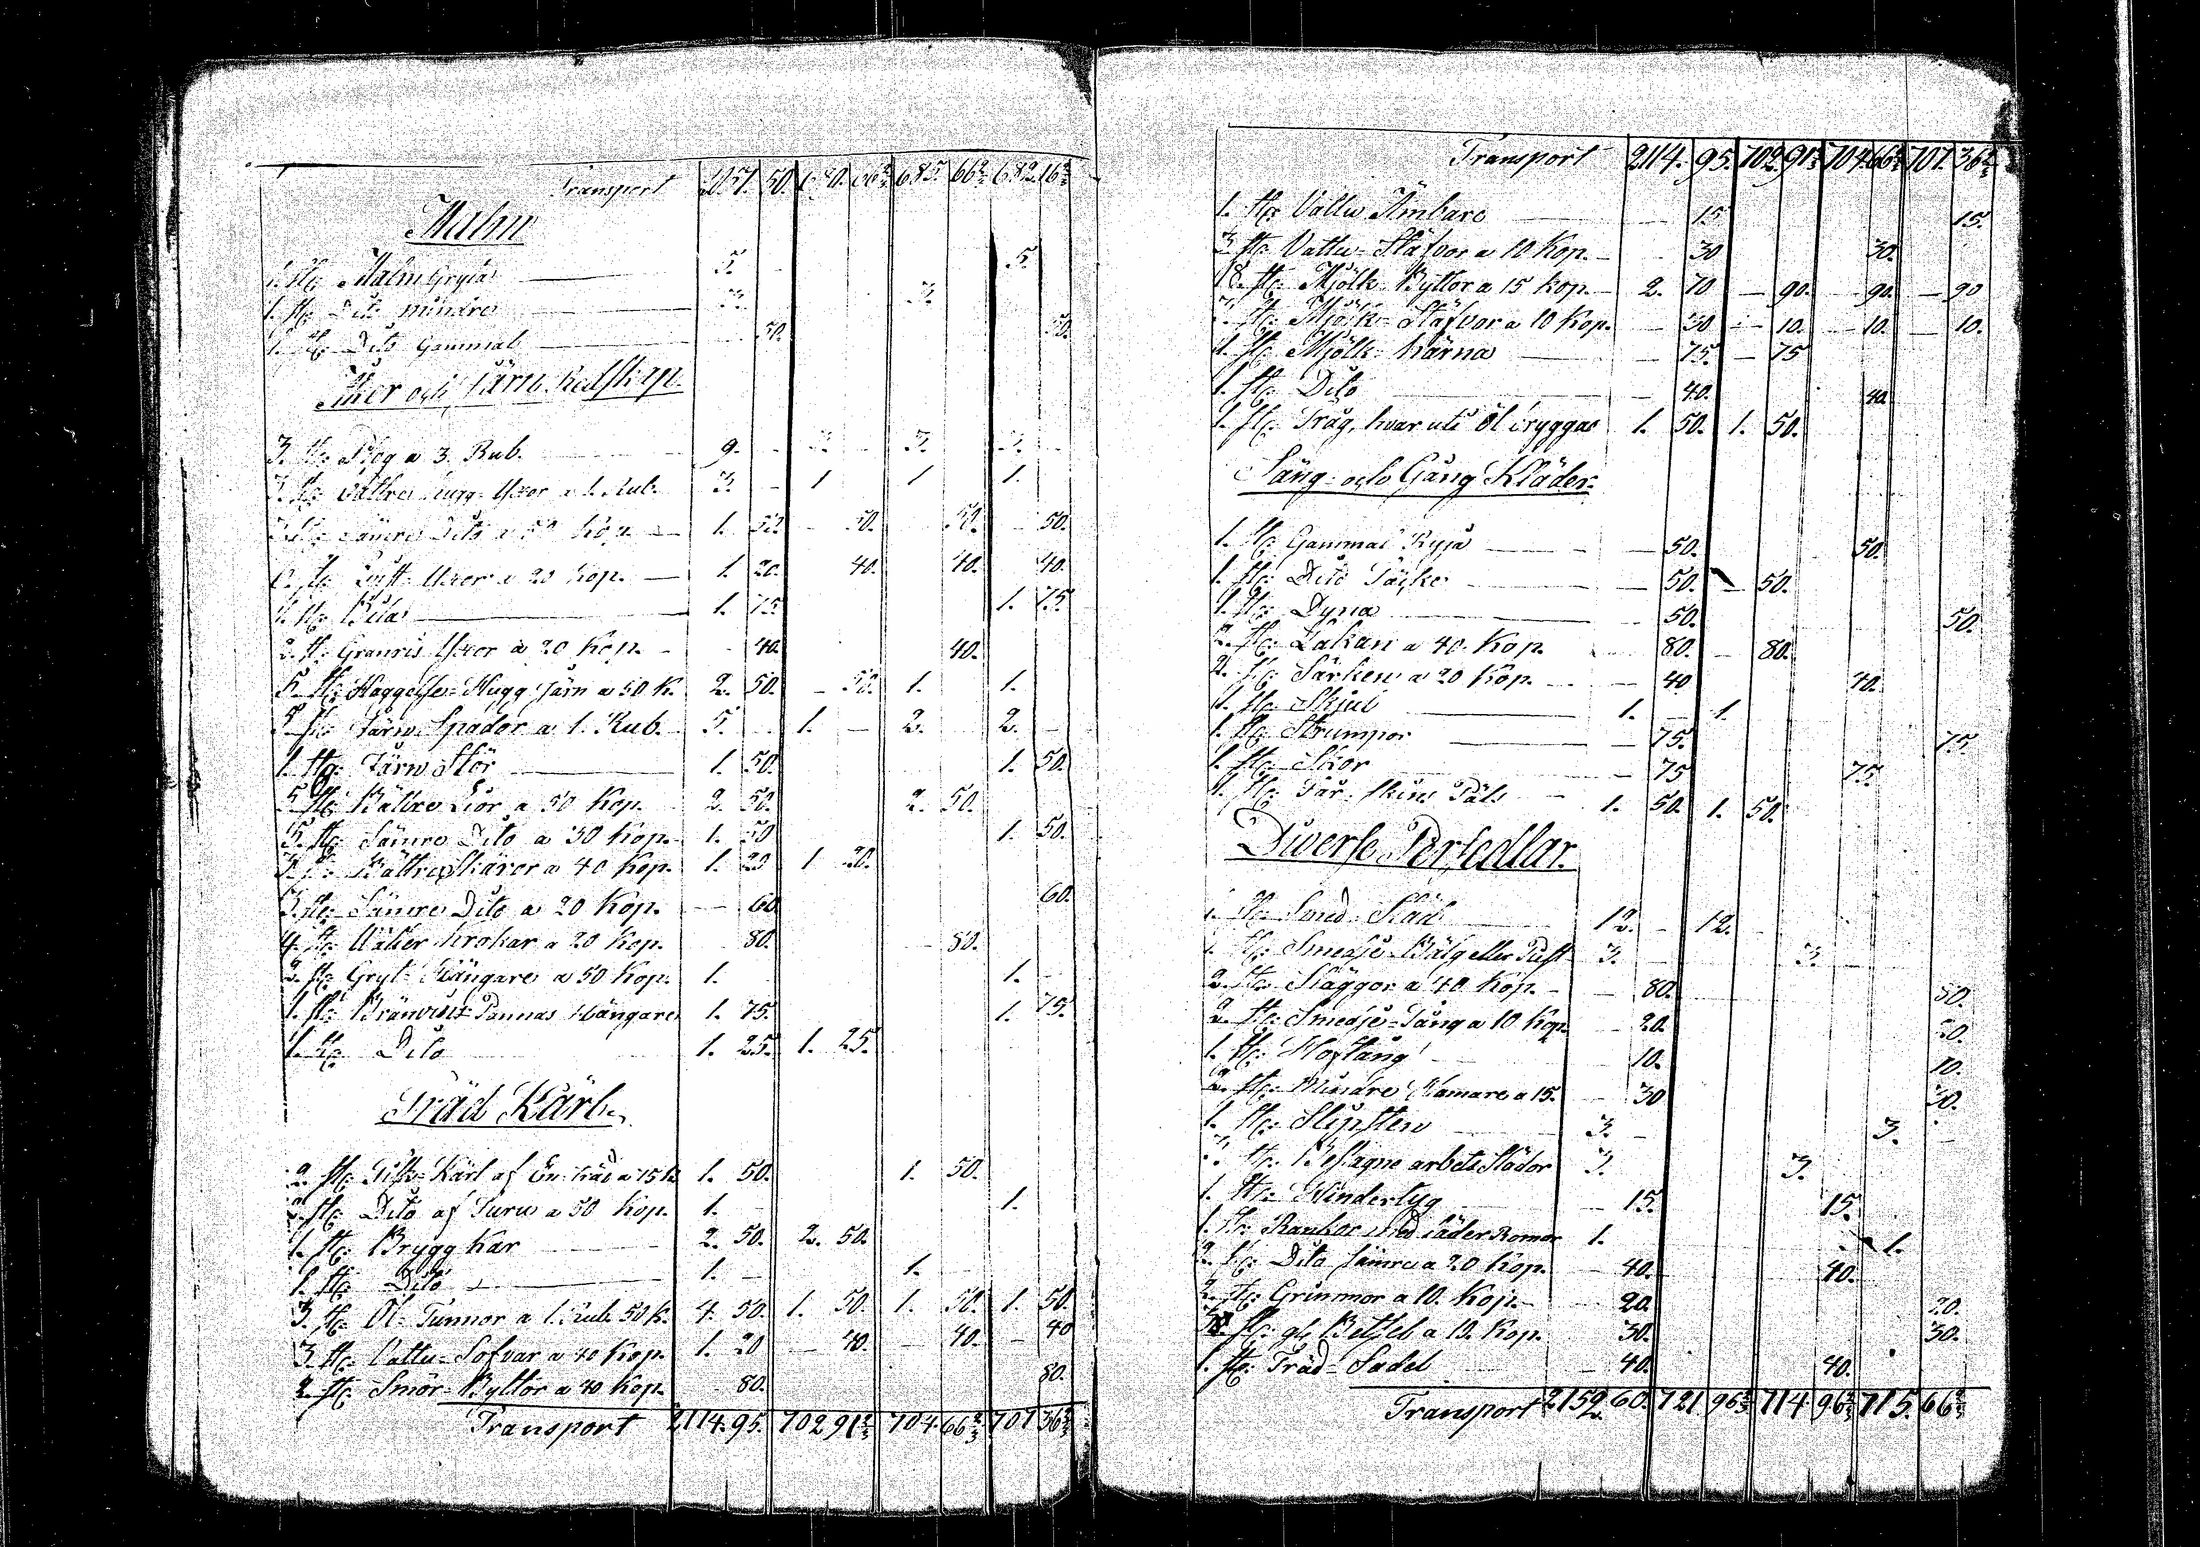 Transport 2057. 50. 680. 66⅔ 685. 66⅔ 682. 16⅔
Malm
1. st: Malm Gryta 5. 5.
1. st: Dito mindre 3. 3.
1. st: Dito Gammal 50. 50.
och Järn Redskap.
3. st: Plog a 3. Rub. 9. 3. 3. 3.
3. st: Bättre Hugg-Yxor a 1. Rub. 3. 1 1 1.
3. st: Sämre Dito a 50 Kop. 1. 50. 50. 50. 50.
6. st: Yxor a 20 Kop. 1. 20. 40. 40. 40.
1. st: Bila 1. 75 1. 75.
2. st: Granris Yxor a 20 Kop. 40. 40.
5. st: Haggelse-Hugg Järn a 50 K. 2. 50. 50. 1. 1.
5. st: Järn Spador a 1. Rub. 5. 1. 2. 2.
1. st: Järn Stör 1. 50. 1. 50.
5. st: Bättre Liör a 50 Kop. 2. 50. 2. 50.
5. st: Sämre Dito a 30 Kop. 1. 50 1. 50.
3. st: Bättre Skäror a 40 Kop. 1. 20 1 20.
3. st: Sämre Dito a 20 Kop. 60 60.
4. st: krokar a 20 Kop. 80. 80.
2. st: Gryt-Hängare a 50 Kop. 1. 1.
1. st: Bränvins-Pannas Hängare 1. 75. 1. 75.
1. st: Dito 1. 25. 1. 25.
Träd Kärl.
2. st: Kärl af En träd a 75 K 1. 50. 1. 50.
2. st: Dito af Furu a 50 Kop. 1. 1.
1. st: Brygg Kar 2. 50. 2. 50.
1. st: Dito 1. 1.
3. st: Öl-Tunnor a 1. Rub. 50 K. 4. 50. 1. 50. 1. 50. 1. 50.
3. st: Vattu-Sofvar a 40 Kop. 1. 20 40. 40. 40
2. st: Smör-Byttor a 40 Kop. 80. 80.
Transport 2114. 95. 702 91⅔ 704. 66⅔ 707 36⅔
Transport 2114. 95. 702. 91⅔ 704 66⅔ 707. 36⅔
1. st: Vattu Ämbare 15 15.
3. st: Vattu-Stäfvor a 10 Kop. 30 30.
18. st: Mjölk-Byttor a 15 Kop. 2. 70 90. 90. 90
3. st: Mjölk-Stäfvor a 10 Kop. 30 10. 10. 10.
1. st: Mjölk-kärna 75. 75
1. st: Dito 40. 40.
1. st: Tråg, hvar uti Öl bryggas 1. 50. 1. 50.
Säng- och Gång Kläder.
1. st: Gammal Ryja 50. 50.
1. st: Dito Täcke 50. 50.
1. st: Dyna 50. 50.
2. st: Lakan a 40. Kop. 80. 80.
2. st: Särken a 20 Kop. 40 40.
1. st: Skjul 1. 1.
1. st: Strumpor 75. 75.
1. st: Skor 75 75.
1. st: Får-skins Päls 1. 50. 1. 50.
Diverse Persedlar.
1. st: Smed-Städ 12. 12.
1. st: Smedje-Bälg eller Pust 3. 3.
2. st: Släggor a 40. Kop. 80. 80.
2. st: Smedje-Tång a 10 Kop. 20. 20.
1. st: Hoftång 10. 10.
2. st: Mindre Hamare a 15. 30 30.
1. st: Slipsten 3. 3.
st: Beslagne arbets Slädor 3. 3.
1. st: Windertyg 15. 15.
1. st: Rankor med Läder Romor 1. 1.
2. st: Dito sämre a 20 Kop. 40. 40.
2. st: Grimmor a 10. Kop. 20. 20.
3. st: gl. Betsel a 10. Kop. 30. 30.
1. st: Träd-Sadel 40. 40.
Transport 2152 60. 721. 96⅔ 714 96⅔ 715. 66⅔